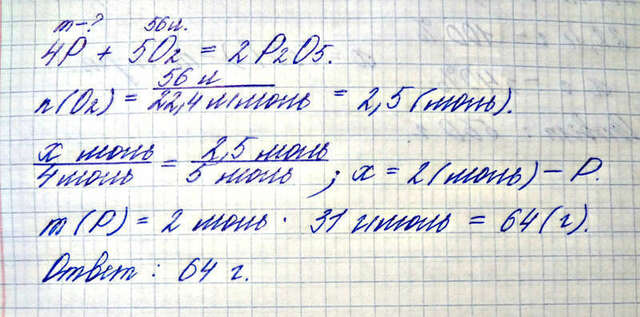 m-? 56л.
4P + 5O₂ = 2P₂O₅.
n(O₂) = 56 л / 22,4 л/моль = 2,5 (моль).
x моль / 4 моль = 2,5 моль / 5 моль ; x = 2 (моль) – P.
m (P) = 2 моль · 31 г/моль = 64 (г).
Ответ : 64 г.